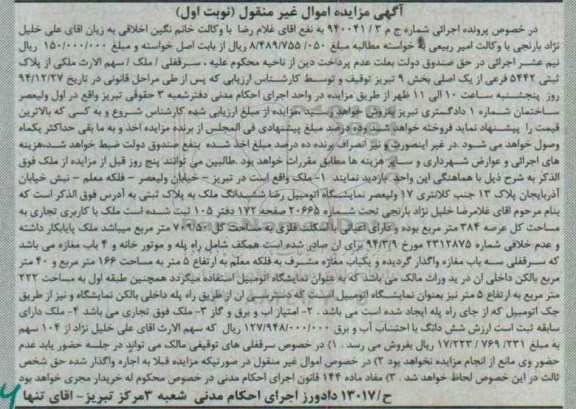 آگهی مزایده اموال غیر منقول (نوبت اول)
در خصوص پرونده اجرائی شماره ج م ۳ / ۹۴۰۰۴۱ به نفع اقای غلام رضا با وکالت خانم نگین اخلاقی به زیان اقای علی خلیل
نژاد بارنجی با وکالت امیر ربیعی خواسته مطالبه مبلغ ۰۵۰/ ۸/۴۸۹/۷۵۵ ریال از بابت اصل خواسته و مبلغ ۱۵۰/۰۰۰/۰۰۰ ریال
نیم عشر اجرائی در حق صندوق دولت بعلت عدم پرداخت دین از ناحیه محکوم علیه ، سرقفلی / ملک / سهم الارث ملکی از پلاک
ثبتی ۵۴۴۲ فرعی از یک اصلی بخش ۹ تبریز توقیف و توسط کارشناس ارزیابی که پس از طی مراحل قانونی در تاریخ ۹۴/۱۲/۲۷
روز پنجشنبه ساعت ۱۰ الی ۱۱ ظهر از طریق مزایده در واحد اجرای احکام مدنی دفترشعبه ۳ حقوقی تبریز واقع در اول ولیعصر
ساختمان شماره ۱ دادگستری تبریز بفروش خواهد رسید. مزایده از مبلغ ارزیابی شده کارشناس شروع و به کسی که بالاترین
قیمت را پیشنهاد نماید فروخته خواهد شد. ده درصد مبلغ پیشنهادی فی المجلس از برنده مزایده اخذ و به ما بقی حداکثر یکماه
وصول خواهد می شود .در غیر اینصورت و نیز انصراف برنده ده درصد مبلغ اخذ شده بنفع صندوق دولت ضبط خواهد شد.هزینه
های اجرائی و عوارض شهرداری و سایر هزینه ها مطابق مقررات خواهد بود .طالبین می توانند پنج روز قبل از مزایده از ملک فوق
الذکر به شرح ذیل با هماهنگی این واحد بازدید نمایند ۱- ملک واقع است در تبریز – خیابان ولیعصر – فلکه معلم – نبش خیابان
آذربایجان پلاک ۱۳ جنب کلانتری ۱۷ ولیعصر نمایشگاه اتومبیل رضا ششدانگ ملک به پلاک ثبتی به آدرس فوق الذکر است که
بنام مرحوم اقای غلامرضا خلیل نژاد بارنجی تحت شماره ۲۰۶۶۵ صفحه ۱۷۲ دفتر ۱۰۵ ثبت شده است ملک با کاربری تجاری به
مساحت کل عرصه ۳۸۴ متر مربع بوده و دارای اعیانی با اسکلت فلزی به مساحت کل ۷۰۹/۵۰ متر مربع میباشد ملک پایانکار داشته
و عدم خلافی شماره ۲۳۱۲۸۷۵ مورخ ۹۴/۳/۹ برای ان صادر شده است همکف شامل راه پله و موتور خانه و ۴ باب مغازه می باشد
که سرقفلی سه باب مغازه واگذار گردیده و یکباب مغازه مشرف به فلکه معلم به ارتفاع ۵ متر به مساحت ۱۶۶ متر مربع و ۴۰ متر
مربع بالکن داخلی ان در ید وراث مالک می باشد که به عنوان نمایشگاه اتومبیل استفاده میگردد همچنین طبقه اول به مساحت ۲۲۲
متر مربع به ارتفاع ۵ متر نیز بعنوان نمایشگاه اتومبیل است که دسترسی ان از طریق راه پله داخلی بالکن نمایشگاه و نیز از طریق
جک اتومبیل که از جای راه پله ایجاد شده است می باشد . ۲- امتیاز آب و برق و گاز ۳- ملک فوق تجاری می باشد ۴- ملک دارای
سابقه ثبت است ارزش شش دانگ با احتساب آب و برق ۱۲۷/۹۴۸/۰۰۰/۰۰۰ ریال که سهم الارث اقای علی خلیل نژاد از ۱۰۴ سهم
به مبلغ ۲۳۱/ ۷۶۹ /۱۷/۲۲۳ ریال بفروش می رسد . ۱) در خصوص سرقفلی های توقیفی مالک می تواند در جلسه حضور یابد عدم
حضور وی مانع از انجام مزایده نخواهد بود ۲) در خصوص اموال غیر منقول در صورتیکه مزایده قبلا به اجاره واگذار شده حق شخص
ثالث در این خصوص لحاظ خواهد شد . ۳) مفاد ماده ۱۴۴ قانون اجرای احکام مدنی در خصوص محکوم له خریدار مجری خواهد بود
ح/۱۳۰۱۷ دادورز اجرای احکام مدنی شعبه ۳مرکز تبریز- اقای تنها